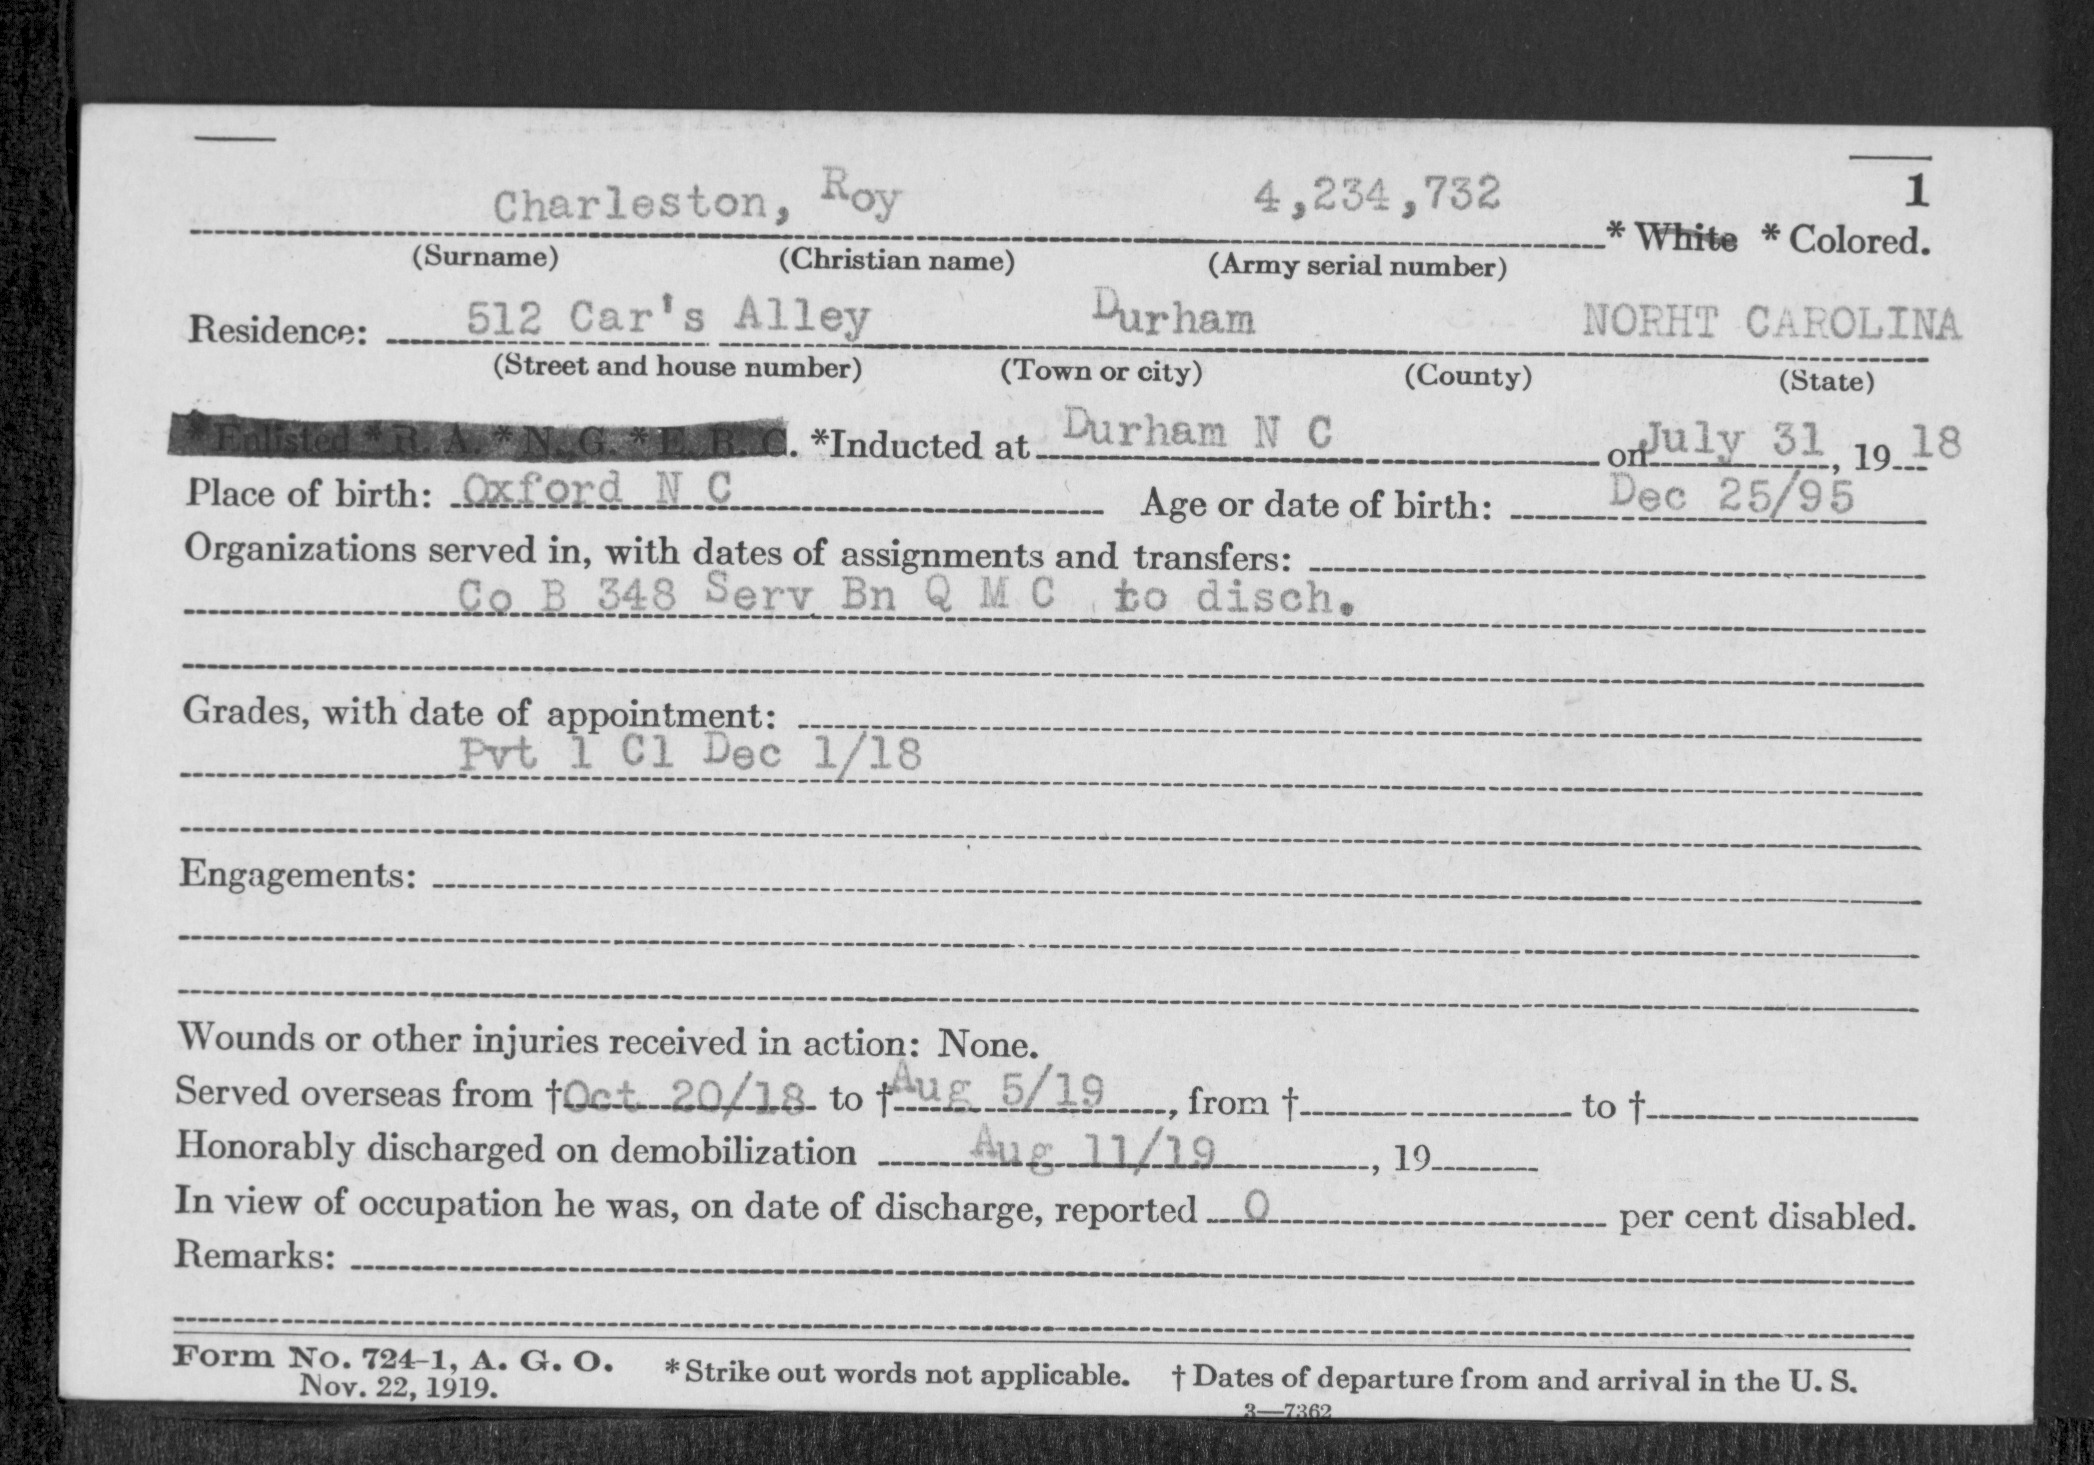 1
Charleston, Roy 4,234,732 * White * Colored.
(Surname) (Christian name) (Army serial number)
Residence: 512 Car's Alley Durham NORHT CAROLINA
(Street and house number) (Town or city) (County) (State)
*Enlisted *R. A. *N. G. *E. R. C. *Inducted at Durham N C on July 31, 1918
Place of birth: Oxford N C Age or date of birth: Dec 25/95
Organizations served in, with dates of assignments and transfers:
Co B 348 Serv Bn Q M C to disch.
Grades, with date of appointment:
Pvt 1 Cl Dec 1/18
Engagements:
Wounds or other injuries received in action: None.
Served overseas from †Oct 20/18 to †Aug 5/19, from † to †
Honorably discharged on demobilization Aug 11/19, 19
In view of occupation he was, on date of discharge, reported 0 per cent disabled.
Remarks:
Form No. 724-1, A. G. O. *Strike out words not applicable. †Dates of departure from and arrival in the U. S.
Nov. 22, 1919.
3—7362